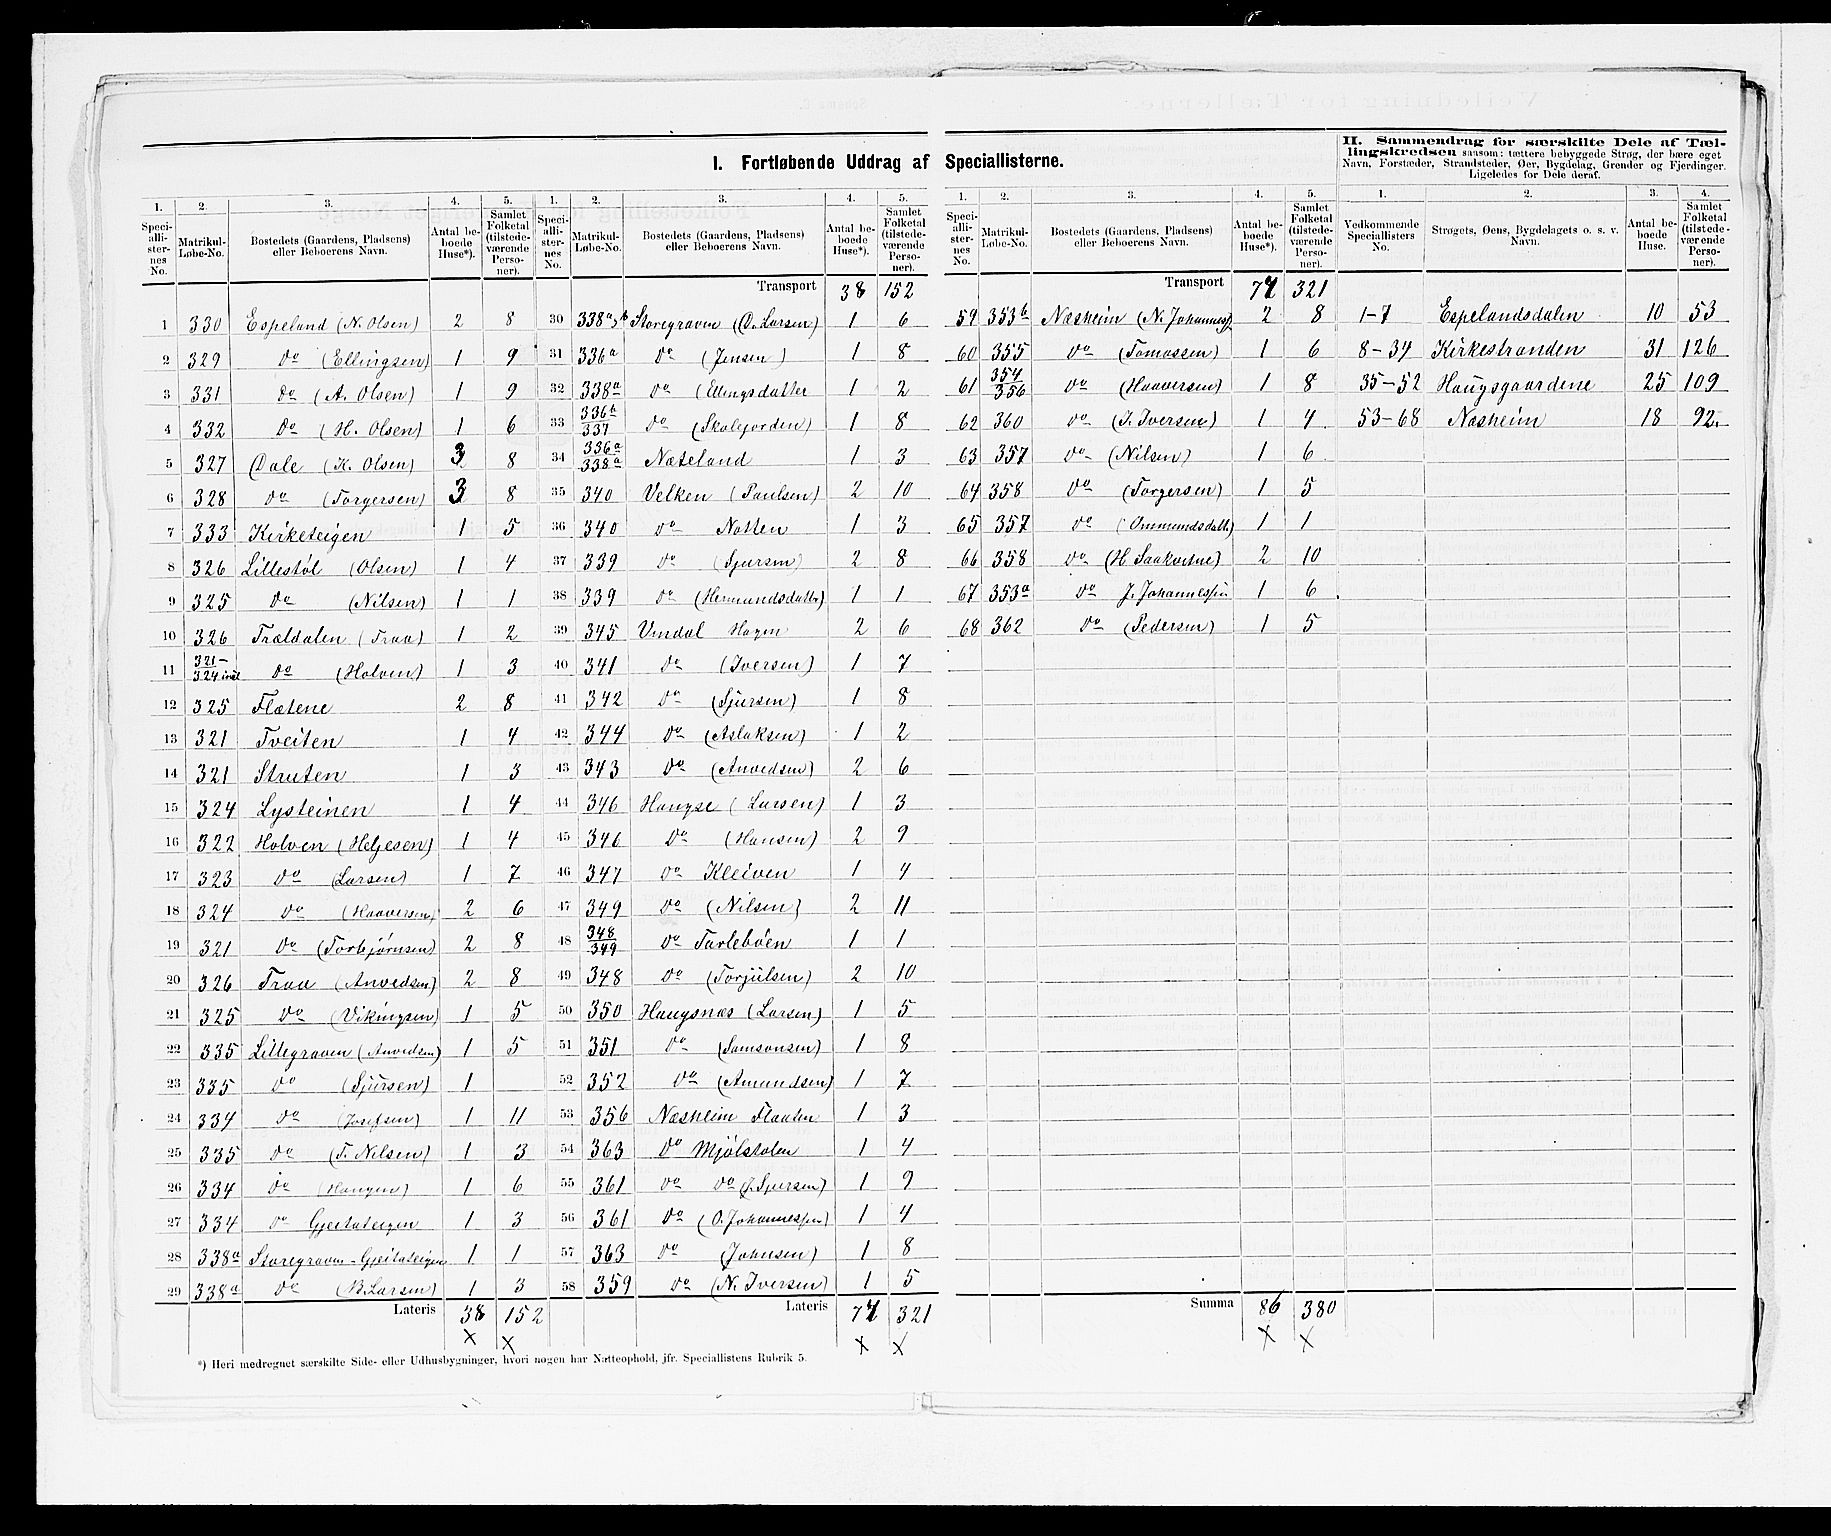 I. Fortløbende Uddrag af Speciallisterne.
II. Sammendrag for særskilte Dele af Tællingskredsen saasom: tættere bebyggede Strøg, der bære eget Navn, Forstæder, Strandsteder, Øer, Bygdelag, Grender og Fjerdinger. Ligeledes for Dele deraf.
1. 2. 3. 4. 5. 1. 2. 3. 4. 5.
Speciallisternes No. Matrikul-Løbe-No. Bostedets (Gaardens, Pladsens) eller Beboerens Navn. Antal beboede Huse*). Samlet Folketal (tilstedeværende Personer).
Speciallisternes No. Matrikul-Løbe-No. Bostedets (Gaardens, Pladsens) eller Beboerens Navn. Antal beboede Huse*). Samlet Folketal (tilstedeværende Personer).
1 330 Espeland (N. Olsen) 2 8
2 329 Do (Ellingsen) 1 9
3 331 Do (A. Olsen) 1 9
4 332 Do (H. Olsen) 1 6
5 327 Dale (K. Olsen) 3 8
6 328 Do (Torgersen) 3 8
7 333 Kirketeigen 1 5
8 326 Lillestøl (Olsen) 1 4
9 325 Do (Nilsen) 1 1
10 326 Trældalen (Traa) 1 2
11 321-324 incl Do (Holven) 1 3
12 325 Flatene 2 8
13 321 Tveiten 1 4
14 321 Struten 1 3
15 324 Lysteinen 1 4
16 322 Holven (Heljesen) 1 4
17 323 Do (Larsen) 1 7
18 324 Do (Haaversen) 2 6
19 321 Do (Torbjørnsen) 2 8
20 326 Traa (Anvedsen) 2 8
21 325 Do (Vikingsen) 1 5
22 335 Lillegraven (Anvedsen) 1 5
23 335 Do (Sjursen) 1
24 334 Do (Josefsen) 1 11
25 335 Do (T. Nilsen) 1 3
26 334 Do (Haugen) 1 6
27 334 Do Gjeitateigen 1 3
28 338a Storegraven - Gjeitateigen 1 1
29 338a Do (B. Larsen) 1 3
Lateris 38 152
x x
Transport 38 152
30 338a,b Storegraven (O. Larsen) 1 6
31 336a Do (Jensen) 1 8
32 338a Do (Ellingsdatter 1 2
33 336b/337 Do (Skalfjorden) 1 8
34 336a/338a Næteland 1 3
35 340 Velken (Paulsen) 2 10
36 340 Do Notten 1 3
37 339 Do (Sjursen) 2 8
38 339 Do (Hermundsdattr) 1 1
39 345 Vindal Hagen 2 6
40 341 Do (Iversen) 1 7
41 342 Do (Sjursen) 1 8
42 344 Do (Aslaksen) 1 2
43 343 Do (Anvedsen) 2 6
44 346 Haugse (Larsen) 1 3
45 346 Do (Hansen) 2 9
46 347 Do Kleiven 1 4
47 349 Do (Nilsen) 2 11
48 348/349 Do Tarlebøen 1 1
49 348 Do (Torjulsen) 2 10
50 350 Haugsnæs (Larsen) 1 5
51 351 Do (Samsonsen) 1 8
52 352 Do (Amundsen) 1 7
53 356 Næsheim Flaaten 1 3
54 363 Do Mjølstølen 1 4
55 361 Do Do (J. Sjursen) 1 9
56 361 Do (O. Johannessen) 1 4
57 363 Do (Johnsen) 1 8
58 359 Do (N. Iversen) 1 5
Lateris 77 321
x x
*) Heri medregnet særskilte Side- eller Udhusbygninger, hvori nogen har Natteophold, jfr. Speciallistens Rubrik 5.
1. 2. 3. 4. 5.
Speciallisternes No. Matrikul-Løbe-No. Bostedets (Gaardens, Pladsens) eller Beboerens Navn. Antal beboede Huse*). Samlet Folketal (tilstedeværende Personer).
Transport 77 321
59 353b Næsheim (N. Johannes) 2 8
60 355 Do (Tomassen) 1 6
61 354/356 Do (Haaversen) 1 8
62 360 Do (J. Iversen) 1 4
63 357 Do (Nilsen) 1 6
64 358 Do (Torgersen) 1 5
65 357 Do (Ommundsdatt.) 1 1
66 358 Do (H Saakvitne) 2 10
67 353a Do J. Johannessen 1 6
68 362 Do (Pedersen) 1 5
Summa 86 380
x x
1. 2. 3. 4.
Vedkommende Speciallisters No. Strøgets, Øens, Bygdelagets o. s. v. Navn. Antal beboede Huse. Samlet Folketal (tilstedeværende Personer).
1-7 Espelandsdalen 10 53
8-34 Kirkestranden 31 126
35-52 Haugsgaardene 25 109
53-68 Næsheim 18 92.